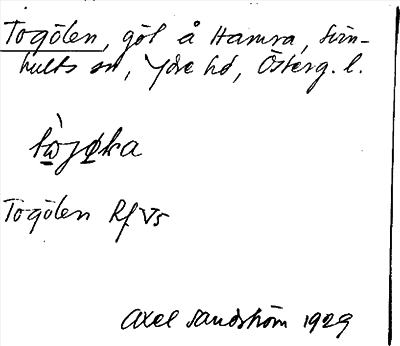 Togölen, göl å Hamra, Svin-
hults sn, Ydre hd, Österg. l.
tò̲jø̲ka
Togölen Rf V5
Axel Sandström 1929